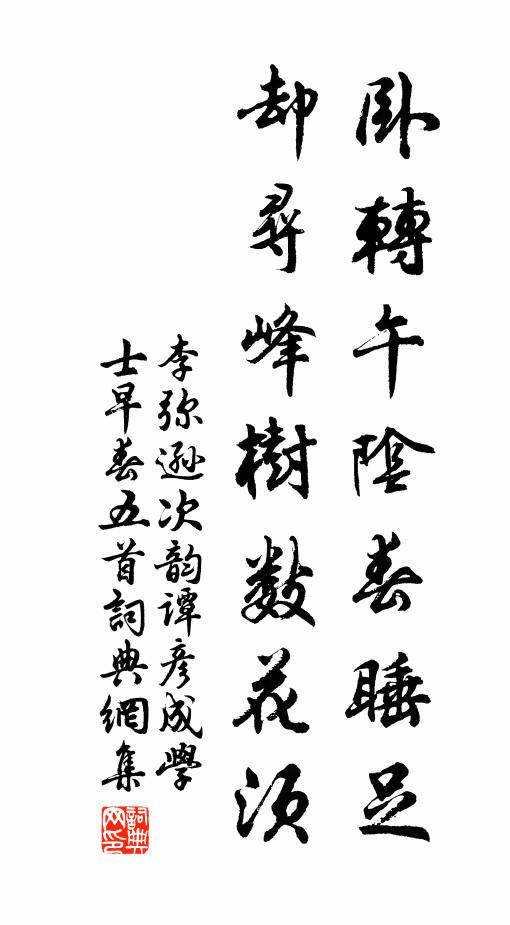 卧轉午陰春睡足
却尋峰樹數花須
李弥遜次韵譚彦成學
士早春五首詞典網集
詞典網印